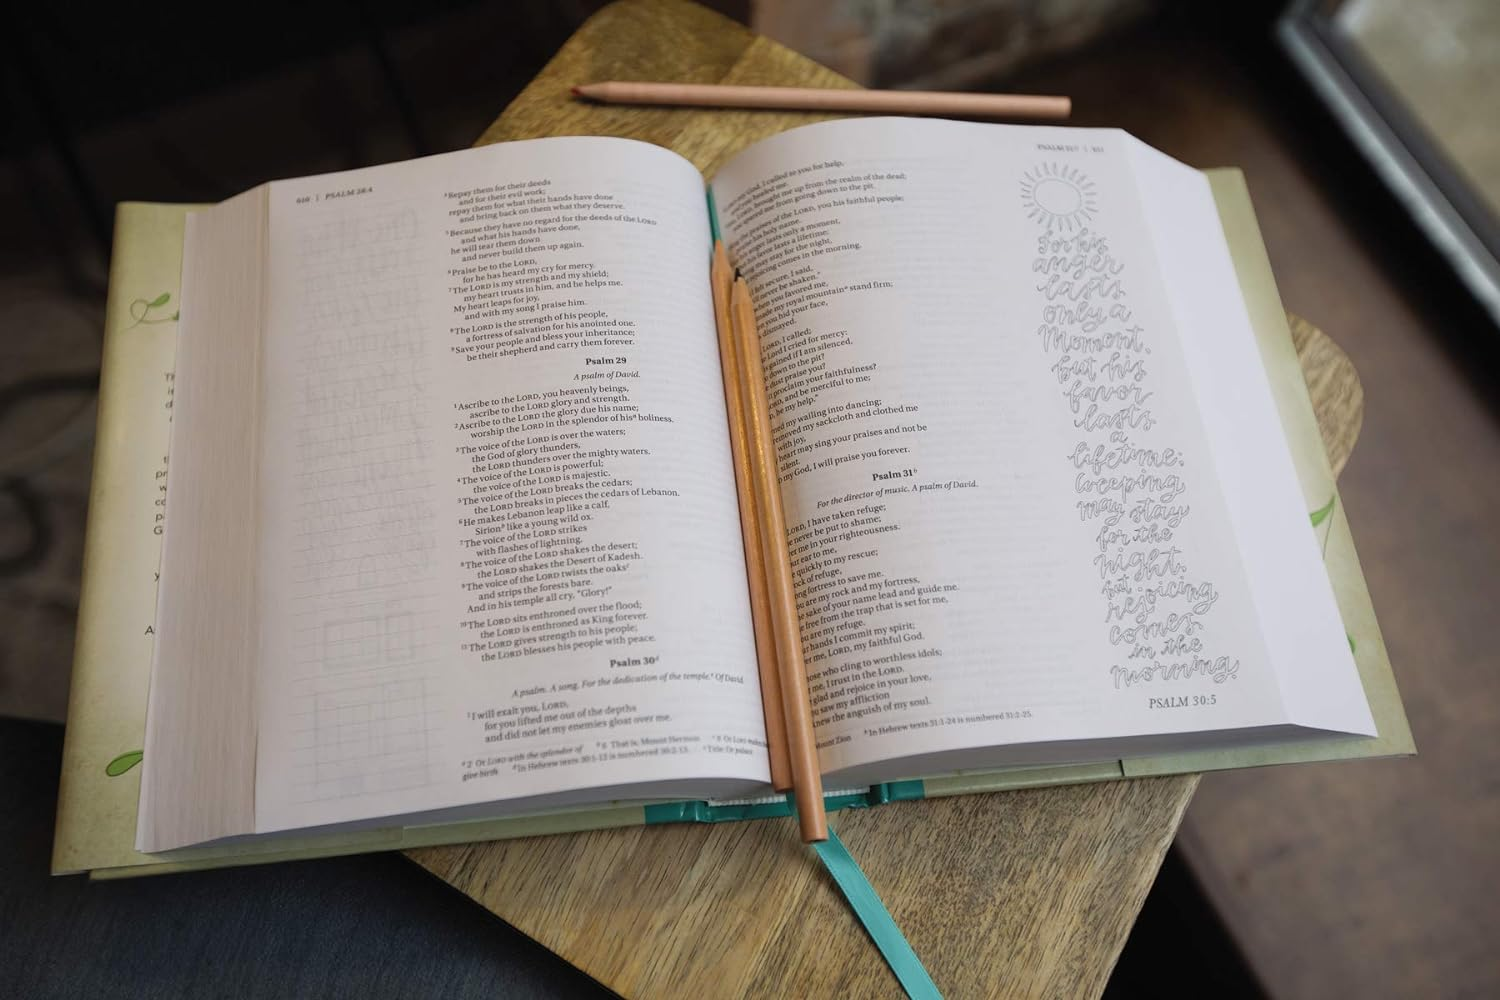 610 | PSALM 28:4
⁴Repay them for their deeds
and for their evil work;
repay them for what their hands have done
and bring back on them what they deserve.
⁵Because they have no regard for the deeds of the LORD
and what his hands have done,
he will tear them down
and never build them up again.
⁶Praise be to the LORD,
for he has heard my cry for mercy.
⁷The LORD is my strength and my shield;
my heart trusts in him, and he helps me.
My heart leaps for joy,
and with my song I praise him.
⁸The LORD is the strength of his people,
a fortress of salvation for his anointed one.
⁹Save your people and bless your inheritance;
be their shepherd and carry them forever.
Psalm 29
A psalm of David.
¹Ascribe to the LORD, you heavenly beings,
ascribe to the LORD glory and strength.
²Ascribe to the LORD the glory due his name;
worship the LORD in the splendor of hisᵃ holiness.
³The voice of the LORD is over the waters;
the God of glory thunders,
the LORD thunders over the mighty waters.
⁴The voice of the LORD is powerful;
the voice of the LORD is majestic.
⁵The voice of the LORD breaks the cedars;
the LORD breaks in pieces the cedars of Lebanon.
⁶He makes Lebanon leap like a calf,
Sirionᵇ like a young wild ox.
⁷The voice of the LORD strikes
with flashes of lightning.
⁸The voice of the LORD shakes the desert;
the LORD shakes the Desert of Kadesh.
⁹The voice of the LORD twists the oaksᶜ
and strips the forests bare.
And in his temple all cry, "Glory!"
¹⁰The LORD sits enthroned over the flood;
the LORD is enthroned as King forever.
¹¹The LORD gives strength to his people;
the LORD blesses his people with peace.
Psalm 30ᵈ
A psalm. A song. For the dedication of the temple.ᵉ Of David.
¹I will exalt you, LORD,
for you lifted me out of the depths
and did not let my enemies gloat over me.
ᵃ 2 Or LORD with the splendor of ᵇ 6 That is, Mount Hermon ᶜ 9 Or LORD makes
give birth ᵈ In Hebrew texts 30:1-12 is numbered 30:2-13. ᵉ Title: Or palace
my God, I called to you for help,
you healed me.
brought me up from the realm of the dead;
spared me from going down to the pit.
the praises of the LORD, you his faithful people;
his holy name.
his anger lasts only a moment,
his favor lasts a lifetime;
may stay for the night,
rejoicing comes in the morning.
felt secure, I said,
never be shaken."
when you favored me,
made my royal mountainᵃ stand firm;
you hid your face,
dismayed.
LORD, I called;
Lord I cried for mercy:
gained if I am silenced,
down to the pit?
dust praise you?
proclaim your faithfulness?
and be merciful to me;
be my help."
my wailing into dancing;
removed my sackcloth and clothed me
with joy,
heart may sing your praises and not be
silent.
my God, I will praise you forever.
Psalm 31ᵇ
For the director of music. A psalm of David.
LORD, I have taken refuge;
never be put to shame;
me in your righteousness.
ear to me,
quickly to my rescue;
of refuge,
fortress to save me.
you are my rock and my fortress,
sake of your name lead and guide me.
free from the trap that is set for me,
you are my refuge.
hands I commit my spirit;
me, LORD, my faithful God.
who cling to worthless idols;
me, I trust in the LORD.
glad and rejoice in your love,
saw my affliction
knew the anguish of my soul.
Mount Zion ᵇ In Hebrew texts 31:1-24 is numbered 31:2-25.
For his
anger
lasts
only a
moment,
but his
favor
lasts
a
lifetime;
weeping
may stay
for the
night,
but
rejoicing
comes
in the
morning.
PSALM 30:5